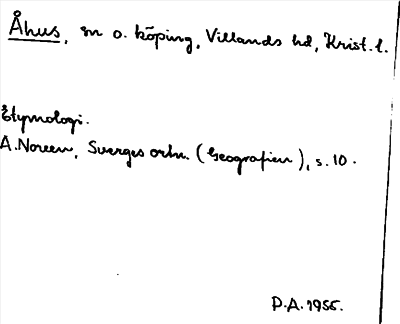 Åhus, sn o. köping, Villands hd, Krist. l.
Etymologi.
A. Noreen, Sveriges ortn. (Geografien), s. 10.
P.A. 1955.